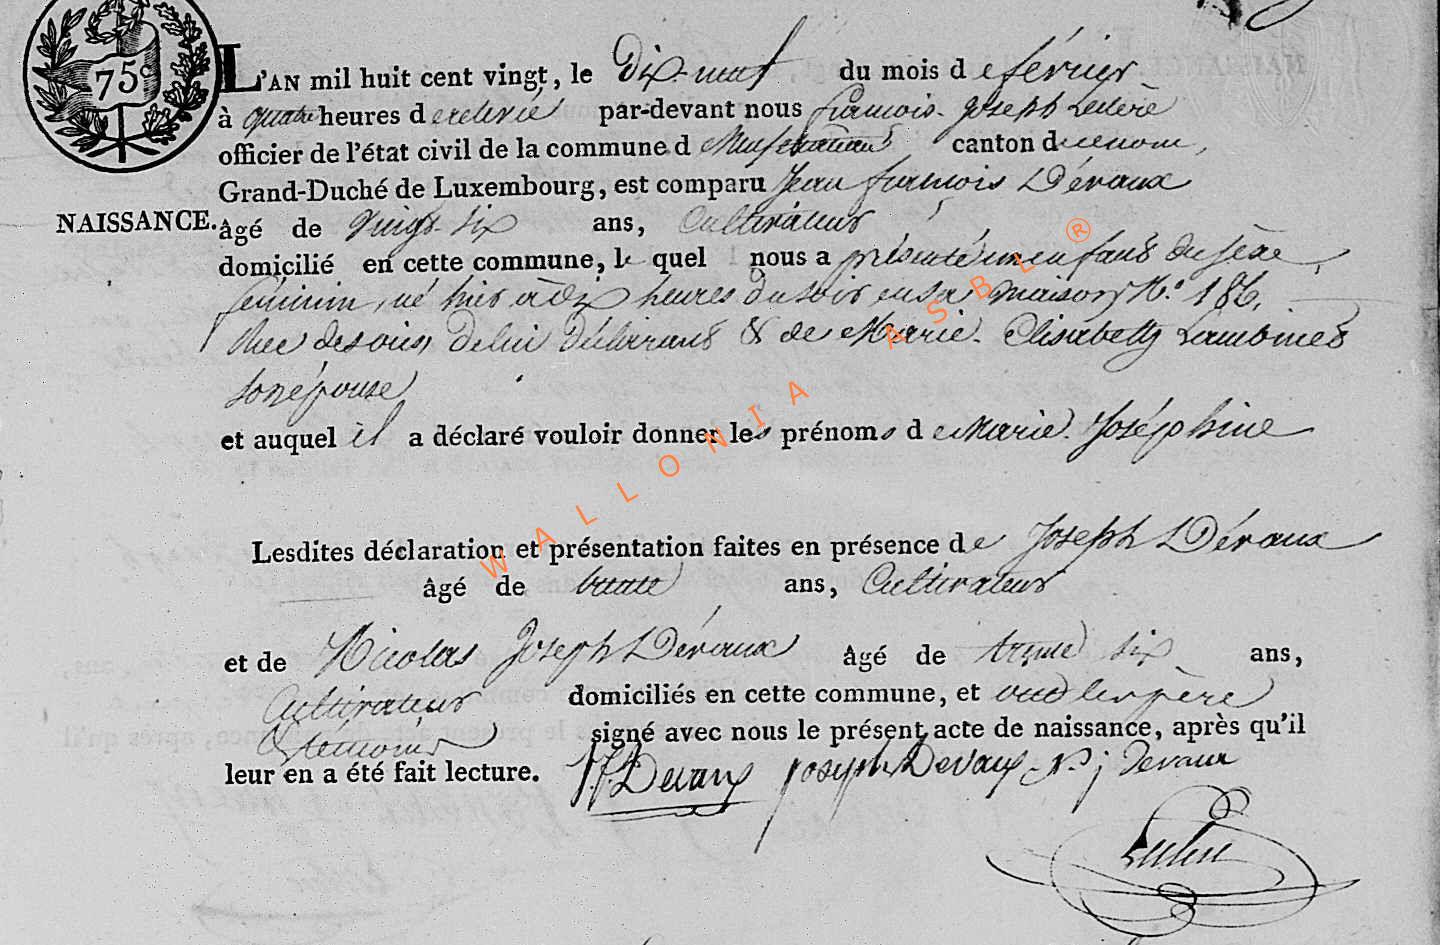 75 c
L'AN mil huit cent vingt, le Dix-neuf du mois de février
à quatre heures de relevé par-devant nous françois-joseph Leclere
officier de l'état civil de la commune de Neufchateau canton du
Grand-Duché de Luxembourg, est comparu Jean françois Dévaux
NAISSANCE. âgé de vingt-six ans, Cultivateur
domicilié en cette commune, le quel nous a présenté un enfant du sèxe
féminin, né hier à dix heures du soir en sa maison N.° 186,
de lui déclarant & de Marie-Elisabeth Lambinet
son épouse
et auquel il a déclaré vouloir donner les prénoms de Marie-Joséphine
Lesdites déclaration et présentation faites en présence de Joseph Dévaux
âgé de trente ans, Cultivateur
et de Nicolas Joseph Dévaux âgé de trente six ans,
Cultivateur domiciliés en cette commune, et ont les père
& temoins signé avec nous le présent acte de naissance, après qu'il
leur en a été fait lecture. J.f. Devaux joseph Devaux N. j Devaux
WALLONIA ASBL ®